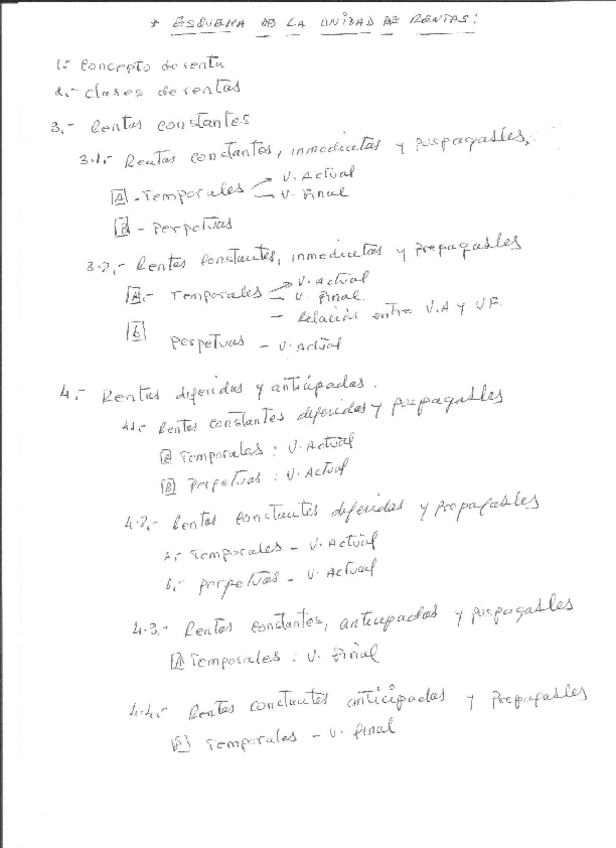 * ESQUEMA DE LA UNIDAD DE RENTAS:
1.- Concepto de renta
2.- Clases de rentas
3.- Rentas constantes
3.1.- Rentas constantes, inmediatas y pospagables.
A - Temporales V. Actual
V. Final
B - Perpetuas
3.2.- Rentas constantes, inmediatas y prepagables
A.- Temporales V. Actual
V. Final.
- Relación entre V.A y V.F.
B Perpetuas - V. Actual
4.- Rentas diferidas y anticipadas.
4.1.- Rentas constantes diferidas y pospagables
A Temporales : V. Actual
B Perpetuas : V. Actual
4.2.- Rentas constantes diferidas y prepagables
A.- Temporales - V. Actual
B.- Perpetuas - V. Actual
4.3.- Rentas constantes, anticipadas y pospagables
A Temporales : V. Final
4.4.- Rentas constantes anticipadas y prepagables
Temporales - V. final